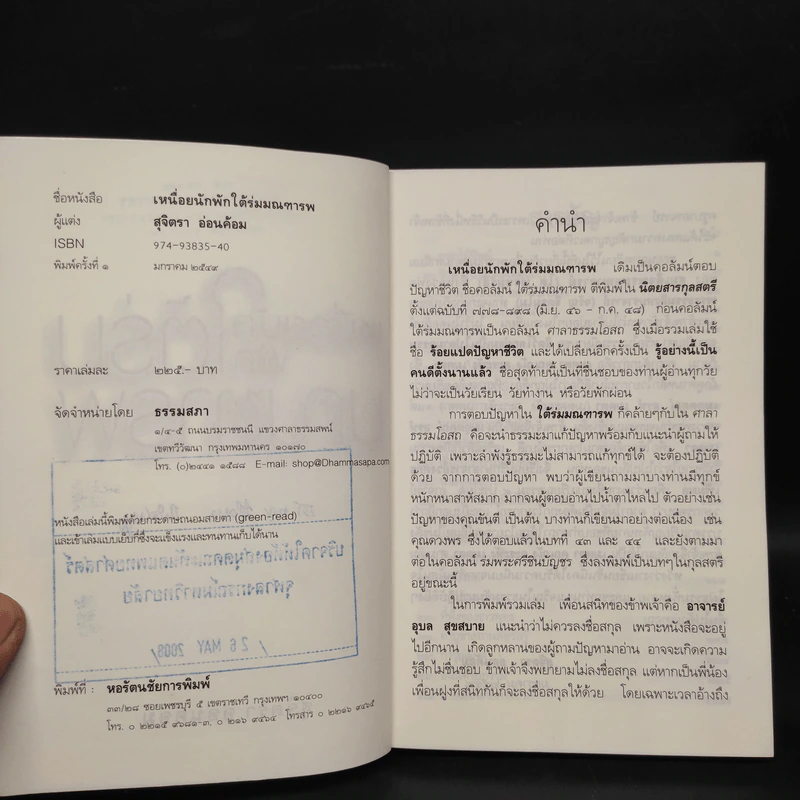 ชื่อหนังสือ เหนื่อยนักพักใต้ร่มมณฑารพ
ผู้แต่ง สุจิตรา อ่อนค้อม
ISBN 974-93835-40
พิมพ์ครั้งที่ ๑ มกราคม ๒๕๔๙
ราคาเล่มละ ๒๒๕.- บาท
จัดจำหน่ายโดย ธรรมสภา
๑/๔-๕ ถนนบรมราชชนนี แขวงศาลาธรรมสพน์
เขตทวีวัฒนา กรุงเทพมหานคร ๑๐๑๗๐
โทร. (๐)๒๔๔๑ ๑๕๘๘ E-mail: shop@Dhammasapa.com
หนังสือเล่มนี้พิมพ์ด้วยกระดาษถนอมสายตา (green-read)
และเข้าเล่มแบบเย็บกี่ซึ่งจะแข็งแรงและทนทานเก็บได้นาน
บริจาคให้ห้องสมุดคณะทันตแพทยศาสตร์
จุฬาลงกรณ์มหาวิทยาลัย
/ 26 MAY 2008/
พิมพ์ที่ : หอรัตนชัยการพิมพ์
๓๓/๒๘ ซอยเพชรบุรี ๕ เขตราชเทวี กรุงเทพฯ ๑๐๔๐๐
โทร. ๐ ๒๒๑๕ ๙๖๘๑-๓, ๐ ๒๑๖ ๙๔๖๔ โทรสาร ๐ ๒๒๑๖ ๙๔๖๕
คำนำ
เหนื่อยนักพักใต้ร่มมณฑารพ เดิมเป็นคอลัมน์ตอบ
ปัญหาชีวิต ชื่อคอลัมน์ ใต้ร่มมณฑารพ ตีพิมพ์ใน นิตยสารกุลสตรี
ตั้งแต่ฉบับที่ ๗๗๘-๘๙๘ (มิ.ย. ๔๖ - ก.ค. ๔๘) ก่อนคอลัมน์
ใต้ร่มมณฑารพเป็นคอลัมน์ ศาลาธรรมโอสถ ซึ่งเมื่อรวมเล่มใช้
ชื่อ ร้อยแปดปัญหาชีวิต และได้เปลี่ยนอีกครั้งเป็น รู้อย่างนี้เป็น
คนดีตั้งนานแล้ว ชื่อสุดท้ายนี้เป็นที่ชื่นชอบของท่านผู้อ่านทุกวัย
ไม่ว่าจะเป็นวัยเรียน วัยทำงาน หรือวัยพักผ่อน
การตอบปัญหาใน ใต้ร่มมณฑารพ ก็คล้ายๆกับใน ศาลา
ธรรมโอสถ คือจะนำธรรมะมาแก้ปัญหาพร้อมกับแนะนำผู้ถามให้
ปฏิบัติ เพราะลำพังรู้ธรรมะไม่สามารถแก้ทุกข์ได้ จะต้องปฏิบัติ
ด้วย จากการตอบปัญหา พบว่าผู้เขียนถามมาบางท่านมีทุกข์
หนักหนาสาหัสมาก มากจนผู้ตอบอ่านไปน้ำตาไหลไป ตัวอย่างเช่น
ปัญหาของคุณขันตี เป็นต้น บางท่านก็เขียนมาอย่างต่อเนื่อง เช่น
คุณดวงพร ซึ่งได้ตอบแล้วในบทที่ ๔๓ และ ๔๔ และยังตามมา
ต่อในคอลัมน์ ร่มพระศรีชินบัญชร ซึ่งลงพิมพ์เป็นบทๆในกุลสตรี
อยู่ขณะนี้
ในการพิมพ์รวมเล่ม เพื่อนสนิทของข้าพเจ้าคือ อาจารย์
อุบล สุขสบาย แนะนำว่าไม่ควรลงชื่อสกุล เพราะหนังสือจะอยู่
ไปอีกนาน เกิดลูกหลานของผู้ถามปัญหามาอ่าน อาจจะเกิดความ
รู้สึกไม่ชื่นชอบ ข้าพเจ้าจึงพยายามไม่ลงชื่อสกุล แต่หากเป็นพี่น้อง
เพื่อนฝูงที่สนิทกันก็จะลงชื่อสกุลให้ด้วย โดยเฉพาะเวลาอ้างถึง